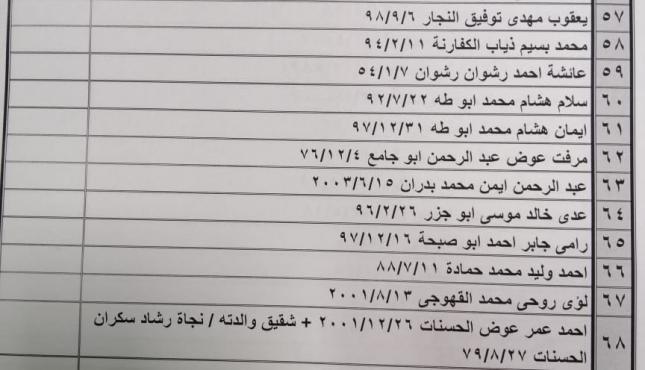 ٥٧ يعقوب مهدى توفيق النجار ٩٨/٩/٦
٥٨ محمد بسيم ذياب الكفارنة ٩٤/٢/١١
٥٩ عائشة احمد رشوان رشوان ٥٤/١/٧
٦٠ سلام هشام محمد ابو طه ٩٢/٧/٢٢
٦١ ايمان هشام محمد ابو طه ٩٧/١٢/٣١
٦٢ مرفت عوض عبد الرحمن ابو جامع ٧٦/١٢/٤
٦٣ عبد الرحمن ايمن محمد بدران ٢٠٠٣/٦/١٥
٦٤ عدى خالد موسى ابو جزر ٩٦/٢/٢٦
٦٥ رامى جابر احمد ابو صبحة ٩٧/١٢/١٦
٦٦ احمد وليد محمد حمادة ٨٨/٧/١١
٦٧ لؤى روحى محمد القهوجى ٢٠٠١/٨/١٣
٦٨ احمد عمر عوض الحسنات ٢٠٠١/١٢/٢٦ + شقيق والدته / نجاة رشاد سكران
الحسنات ٧٩/٨/٢٧